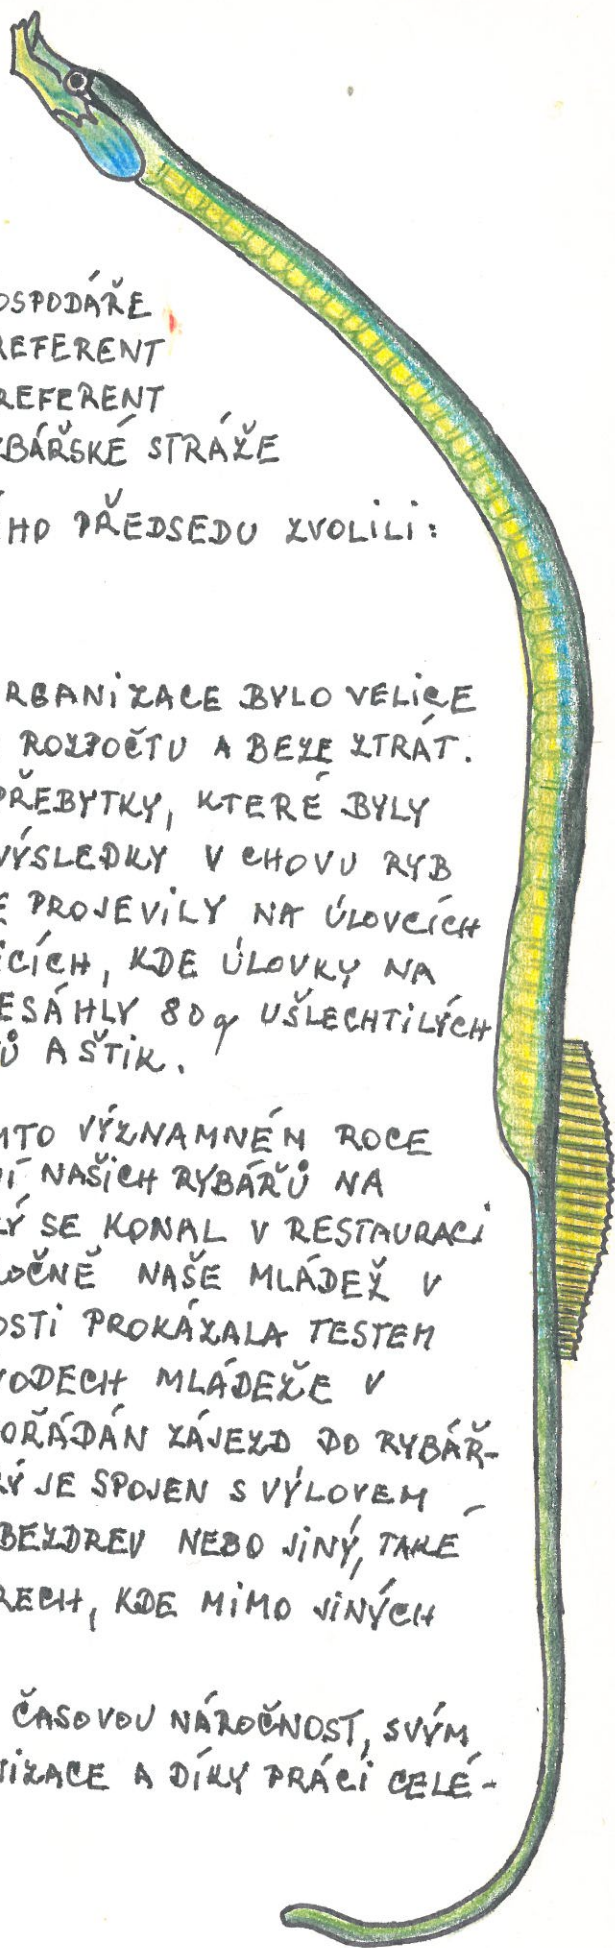 OSPODÁŘE
REFERENT
REFERENT
BÁŘSKÉ STRÁŽE
ÍHO PŘEDSEDU ZVOLILI:
RGANIZACE BYLO VELICE
ROZPOČTU A BEZE ZTRÁT.
PŘEBYTKY, KTERÉ BYLY
VÝSLEDKY V CHOVU RYB
E PROJEVILY NA ÚLOVCÍCH
ICÍCH, KDE ÚLOVKY NA
ESÁHLY 80q UŠLECHTILÝCH
Ů A ŠTIK.
MTO VÝZNAMNÉM ROCE
Í NAŠICH RYBÁŘŮ NA
Ý SE KONAL V RESTAURACI
ROČNĚ NAŠE MLÁDEŽ V
OSTI PROKÁZALA TESTEM
VODECH MLÁDEŽE V
OŘÁDÁN ZÁJEZD DO RYBÁŘ-
RÝ JE SPOJEN S VÝLOVEM
BEZDREV NEBO JINÝ, TAKÉ
RECH, KDE MIMO JINÝCH
ČASOVOU NÁROČNOST, SVÝM
NIZACE A DÍKY PRÁCI CELÉ-